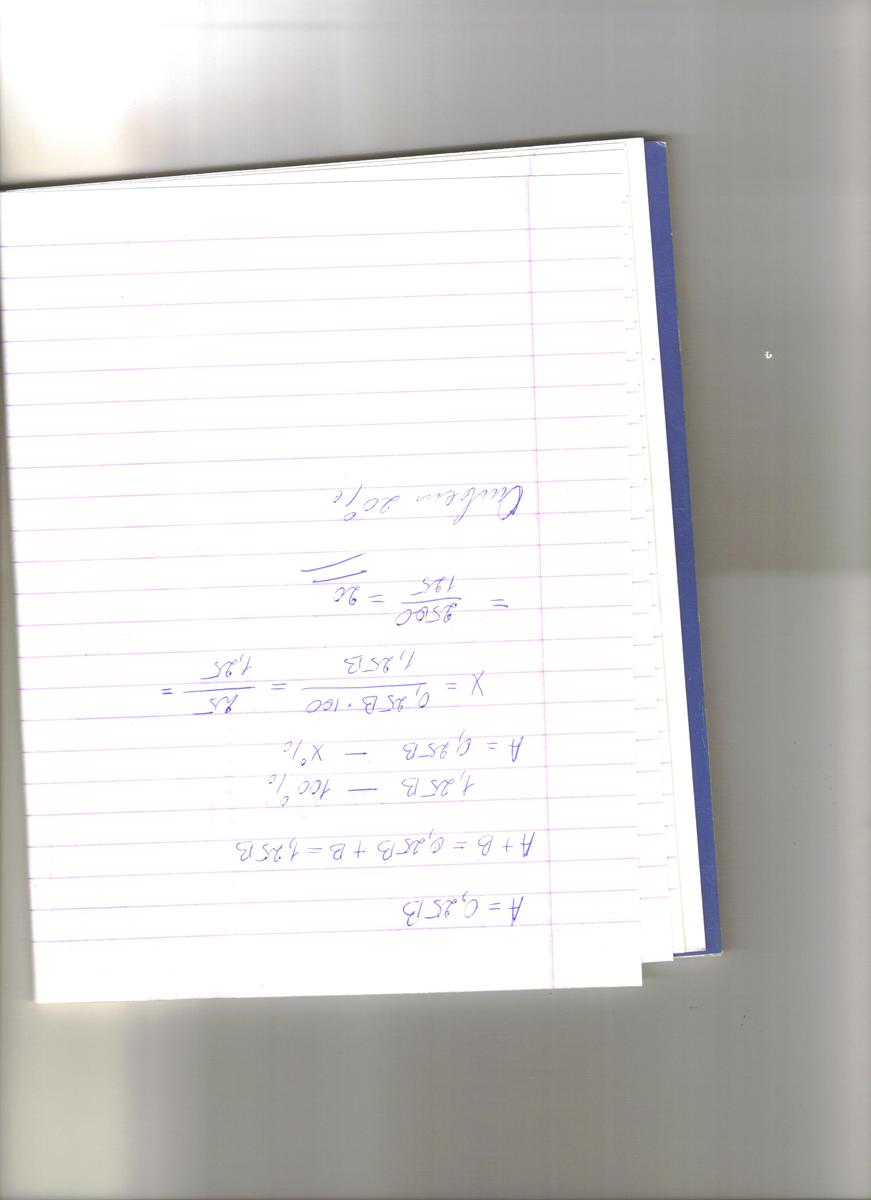 A = 0,25B
A + B = 0,25B + B = 1,25B
1,25B — 100%
A = 0,25B — x%
X = 0,25B·100 / 1,25B = 25 / 1,25 =
= 2500 / 125 = 20
Ответ 20%